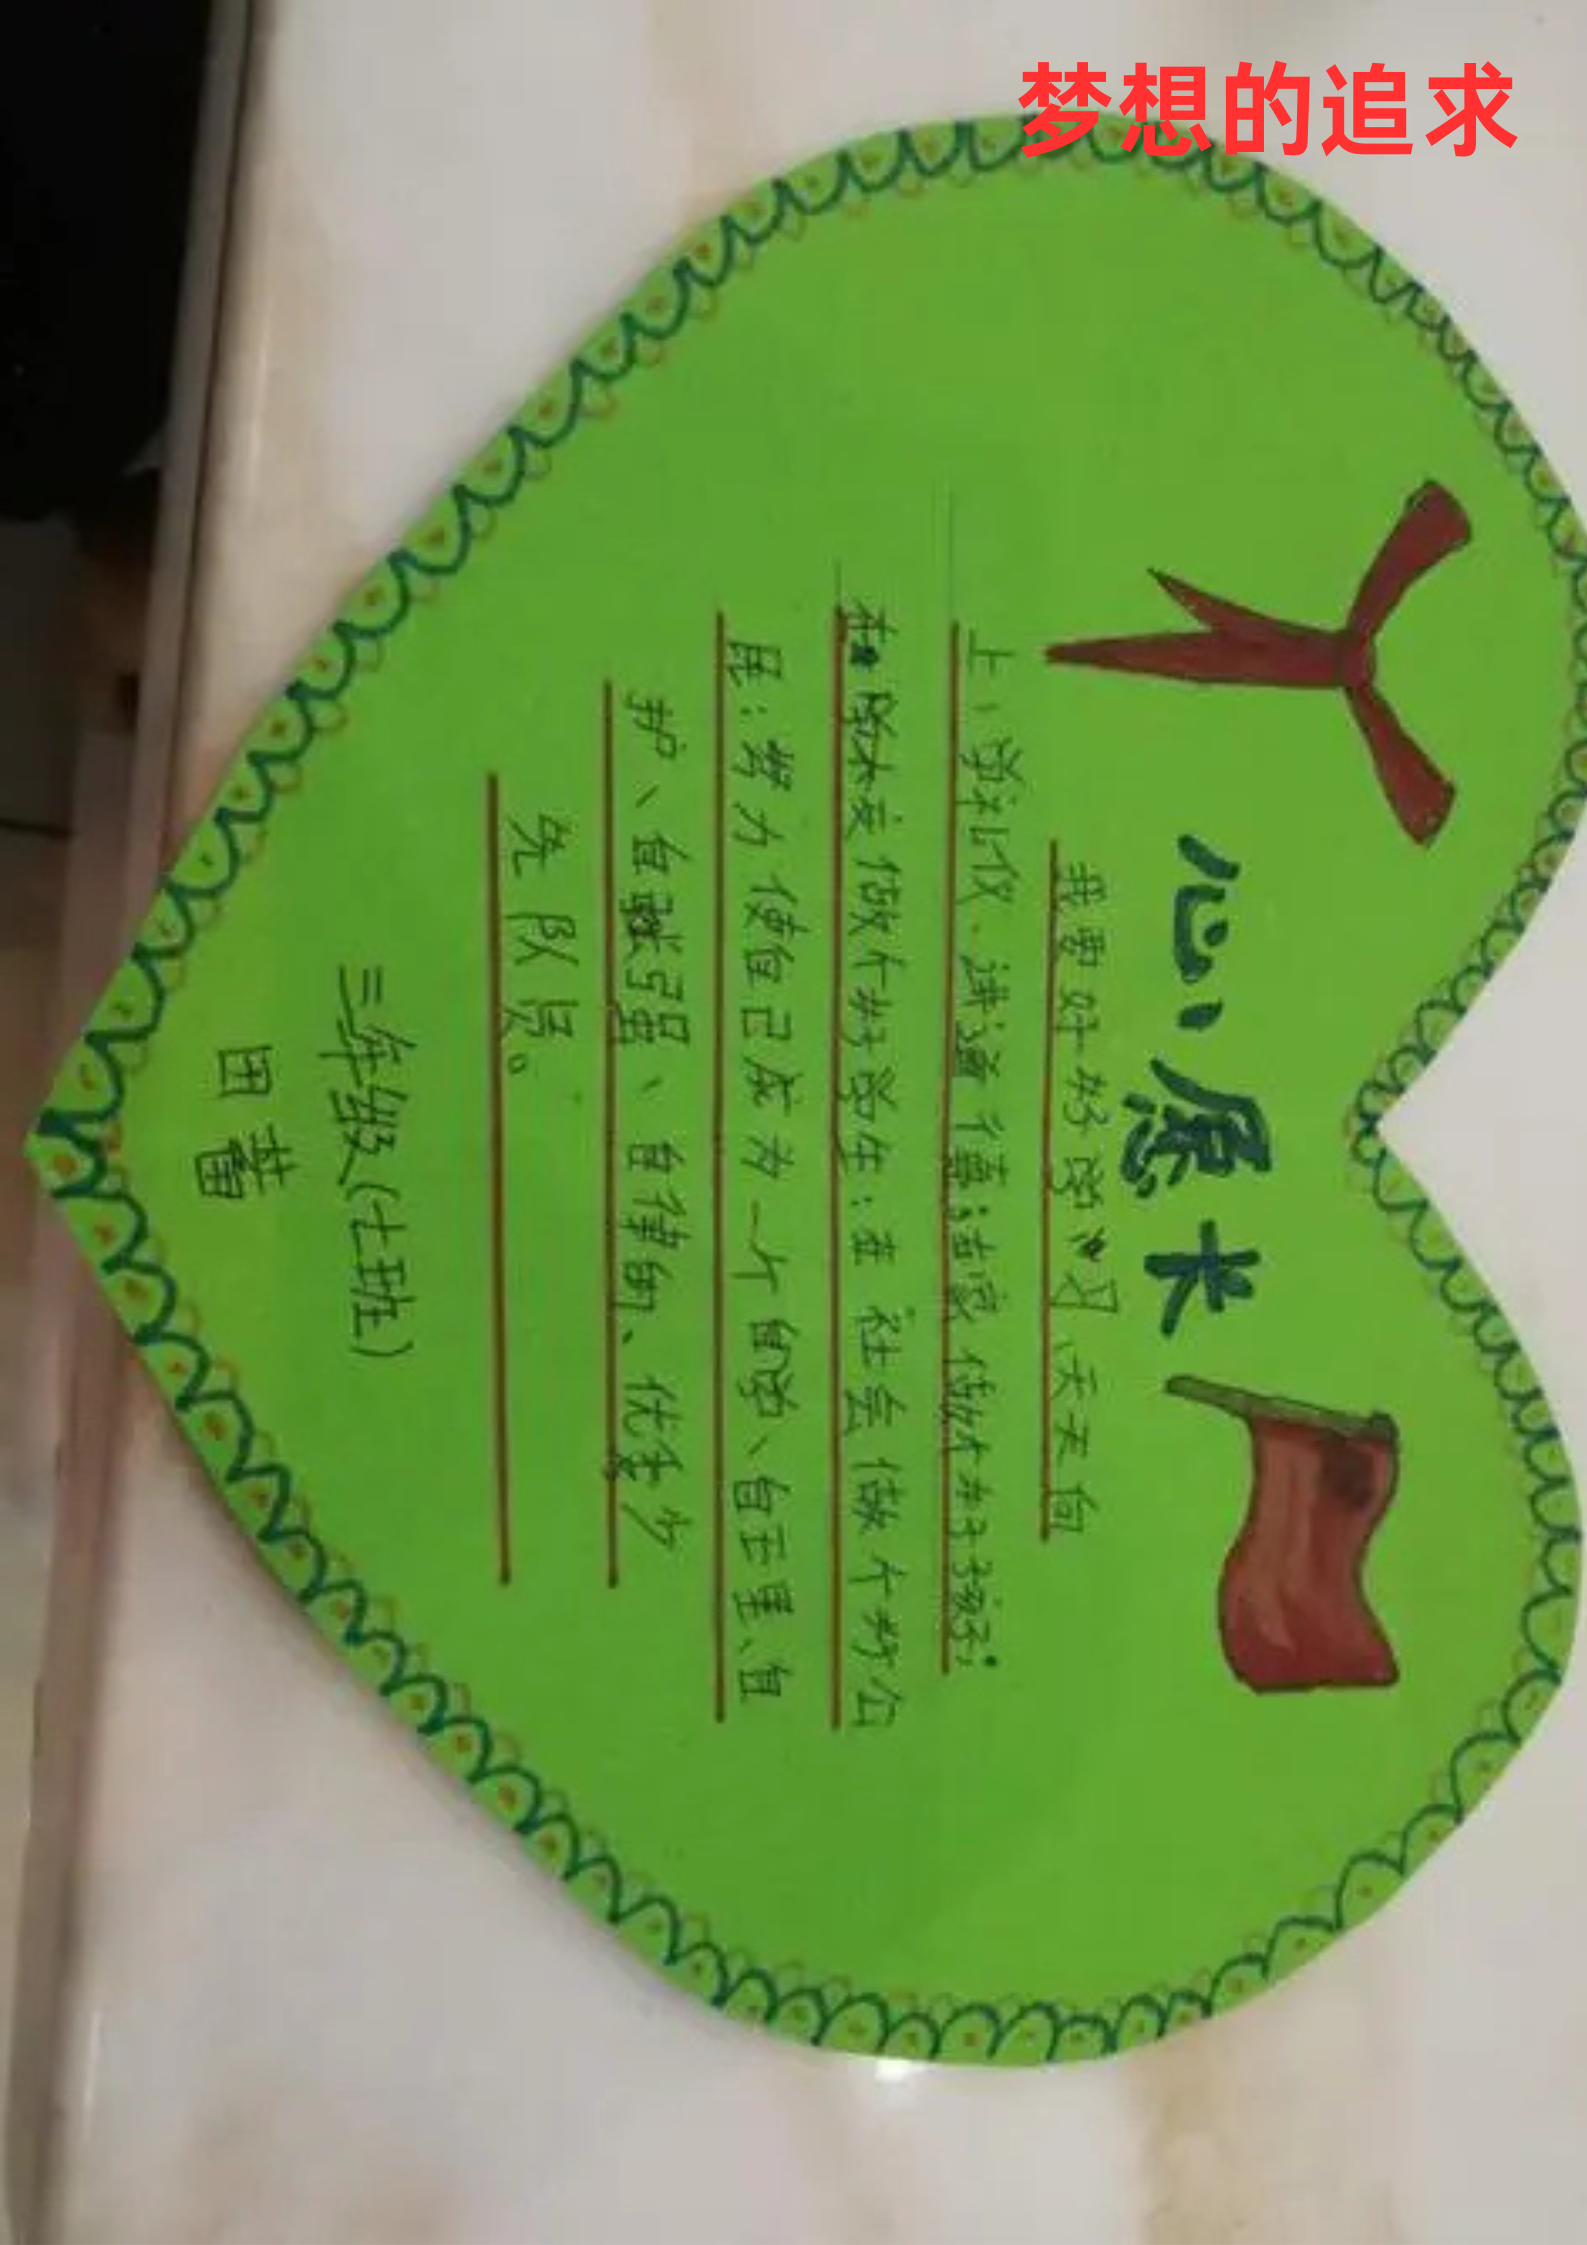 梦想的追求
心愿卡
我要好好学习,天天向
上,学礼仪.讲道德;在家做个好孩子;
在学校做个好学生;在社会做个好公
民;努力使自己成为一个自学、自理、自
护、自强、自律的、优秀少
先队员。
三年级(七班)
田蕾